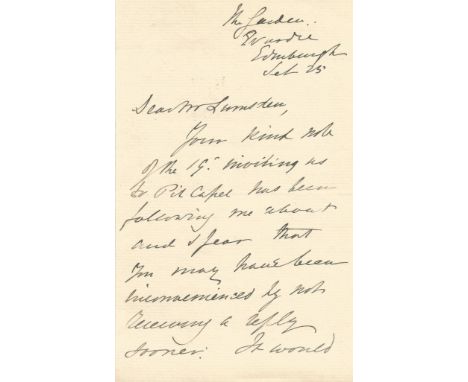 The Garden.
Wardie
Edinburgh
Sat 25
Dear Mr Lumsden,
Your kind note
of the 19th inviting us
to Pit Capel has been
following me about
and I fear that
you may have been
inconvenienced by not
receiving a reply
sooner. It would